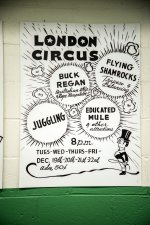 LONDON
CIRCUS
FLYING
SHAMROCKS
BUCK
REGAN
Australian
JUGGLING
EDUCATED
MULE
& other
attractions
8 p.m.
TUES-WED-THURS-FRI-
DEC. 19th-20th-21st-22nd
adm. 50¢